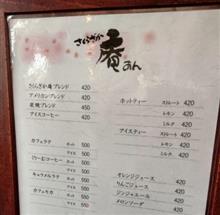 さらさか
庵
あん
ブレンド 420
アメリカンブレンド 420
炭焼ブレンド 450
アイスコーヒー 420
カフェラテ ホット 500
アイス 500
ホット 500
アイス 500
キャラメルラテ ホット 500
アイス 500
カフェモカ ホット 550
アイス 550
ホットティー ストレート 420
レモン 420
ミルク 420
アイスティー ストレート 420
レモン 420
ミルク 420
オレンジジュース 420
りんごジュース 420
ジンジャエール 420
メロンソーダ 420